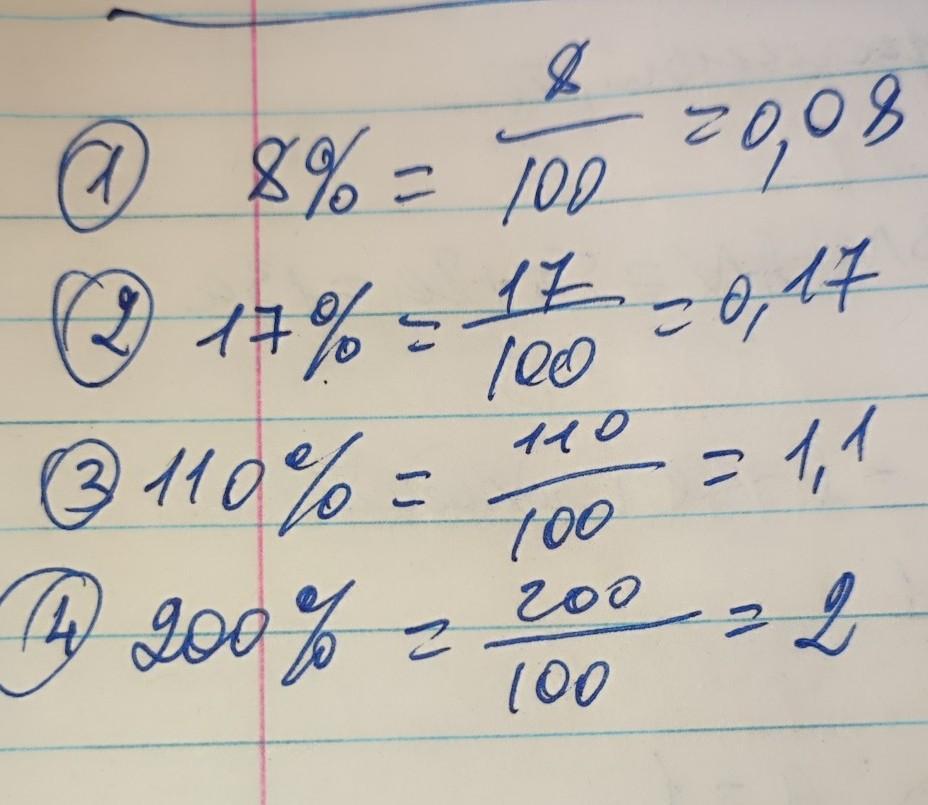 ① 8% = 8/100 = 0,08
② 17% = 17/100 = 0,17
③ 110% = 110/100 = 1,1
④ 200% = 200/100 = 2